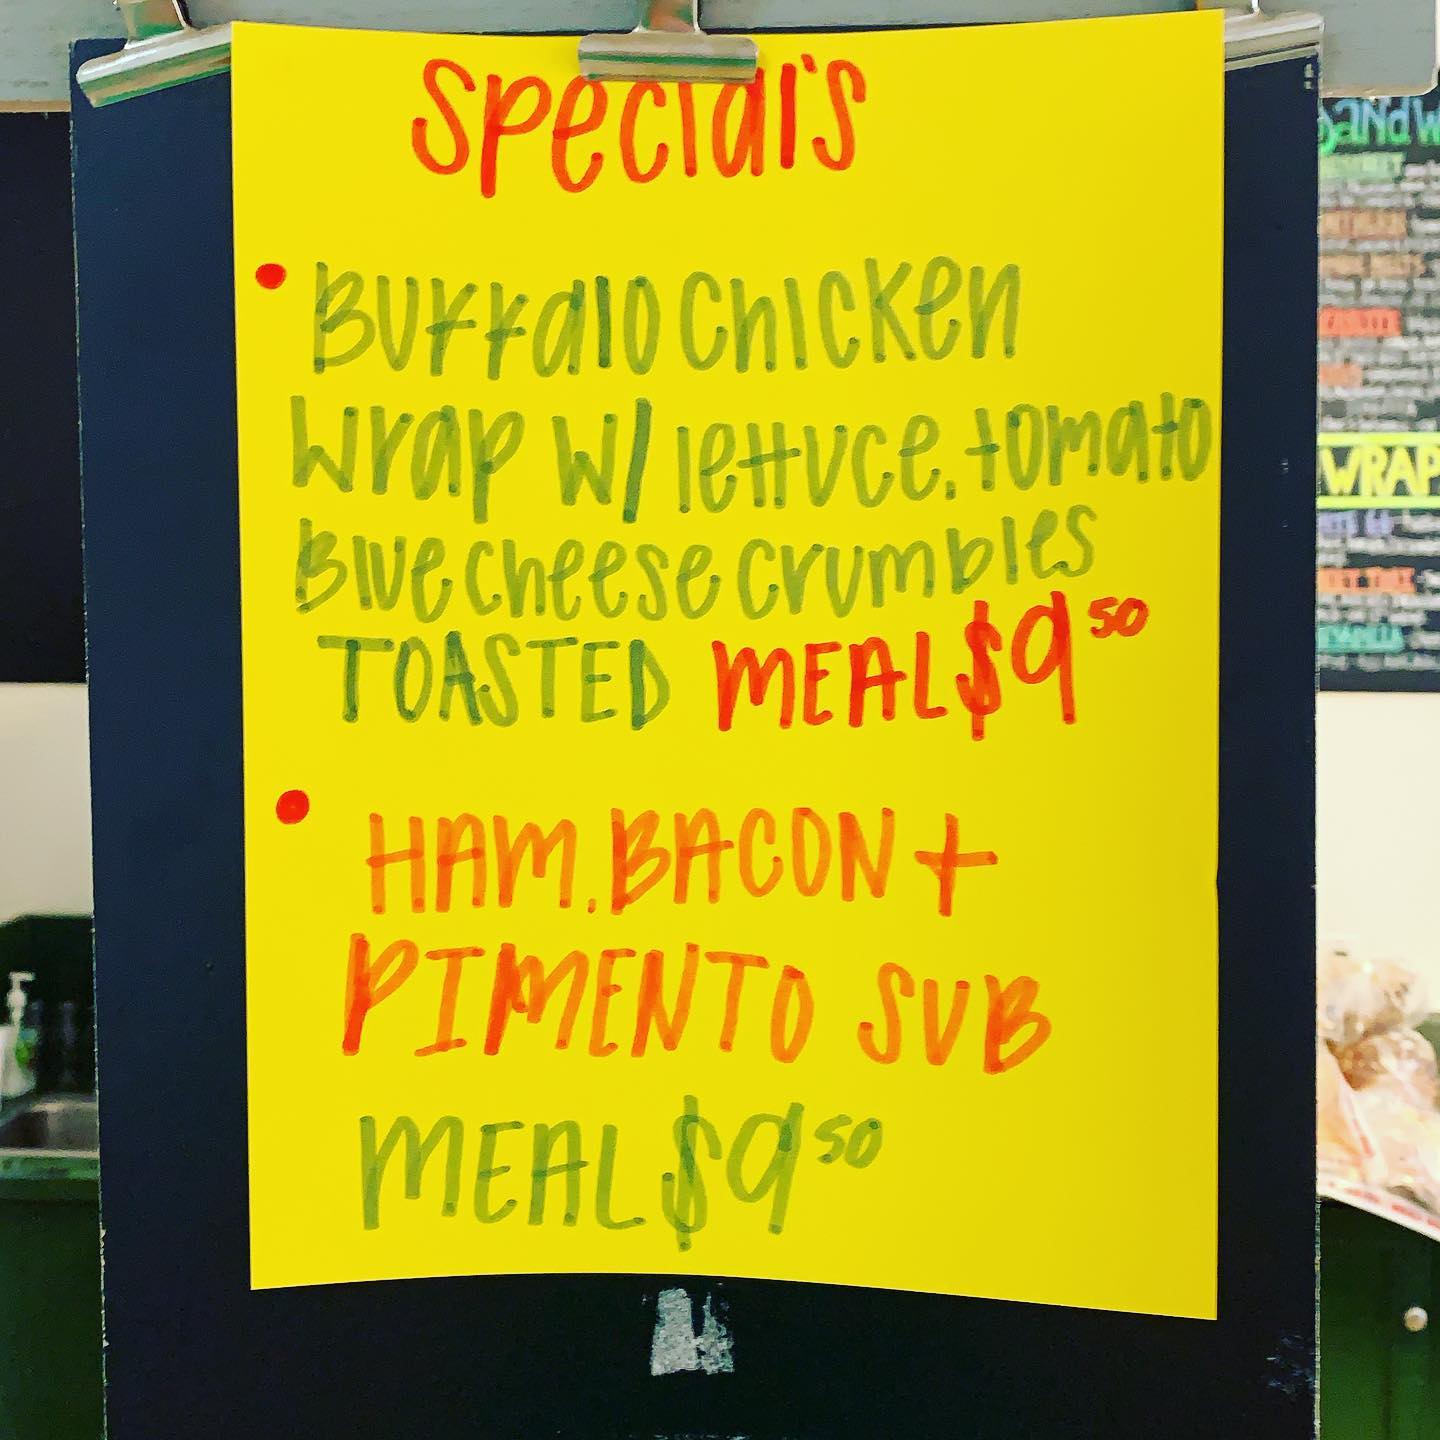 Special's
• Buffalo Chicken
Wrap w/ lettuce, tomato
Blue cheese crumbles
TOASTED MEAL $9.50
• HAM, BACON +
PIMENTO SUB
MEAL $9.50
WRAP